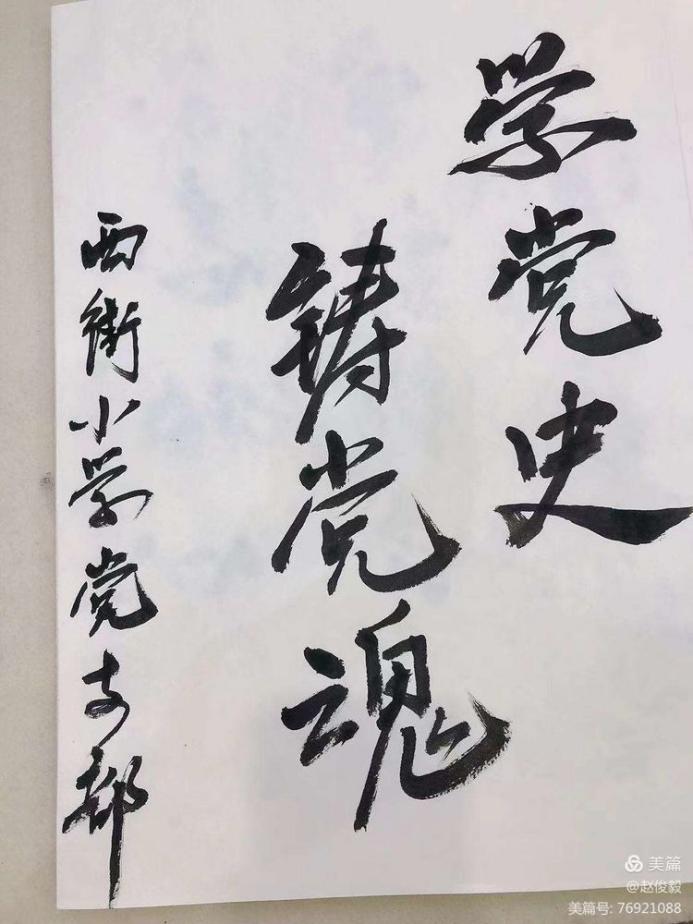 学党史
铸党魂
西街小学党支部
美篇
@赵俊毅
美篇号: 76921088